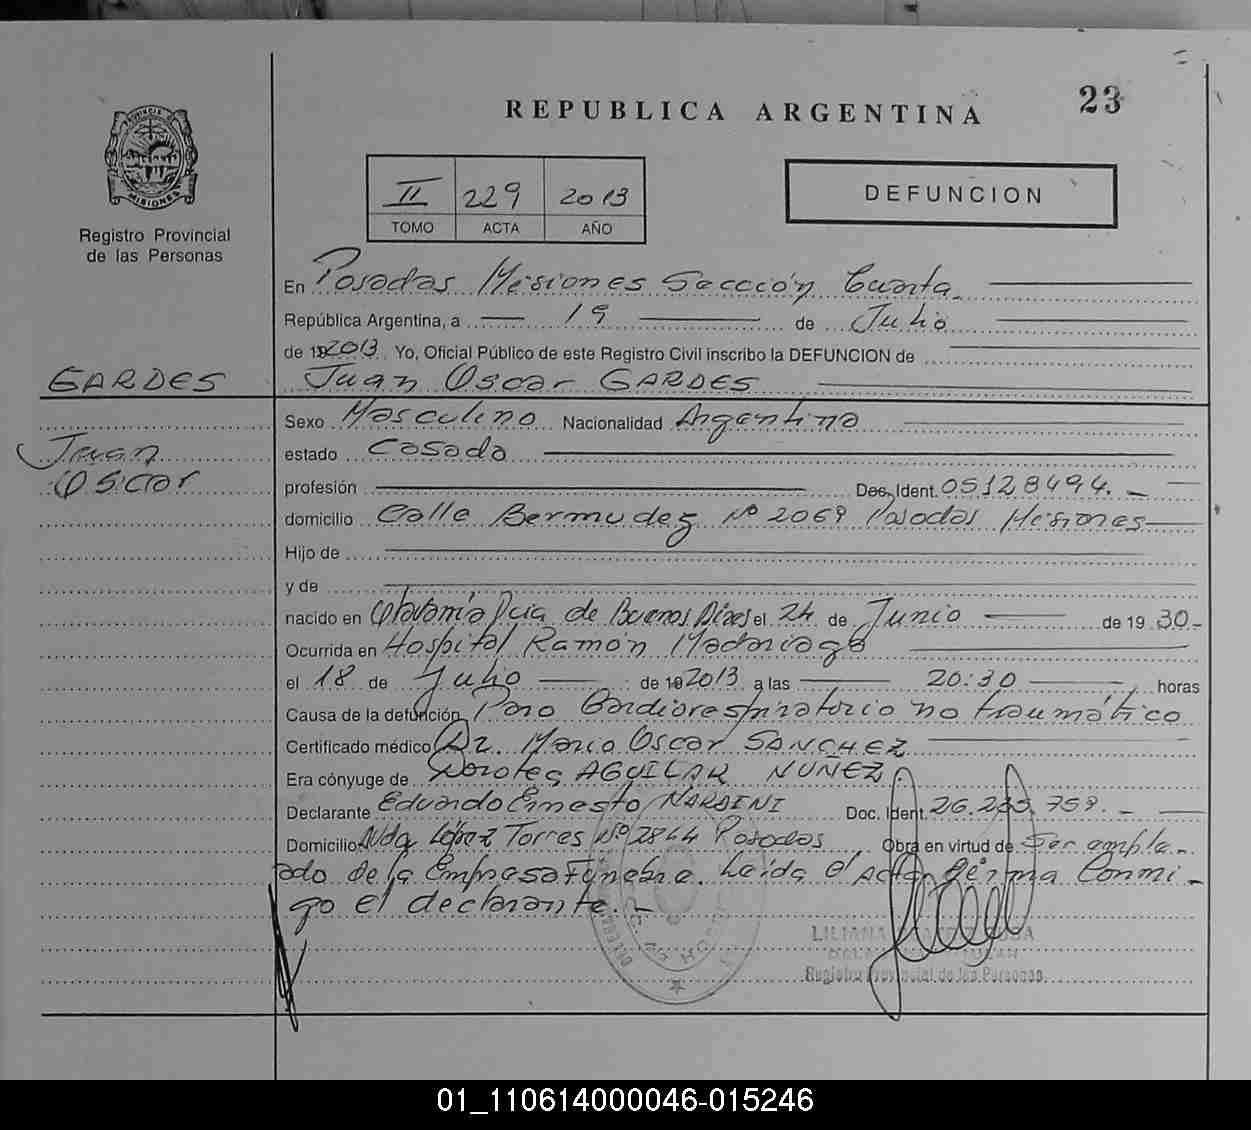 23
REPUBLICA ARGENTINA
PROVINCIA DE MISIONES
Registro Provincial
de las Personas
II 229 2013
TOMO ACTA AÑO
DEFUNCION
En Posadas Misiones Sección Cuarta
República Argentina, a 19 de Julio
de 2013 Yo, Oficial Público de este Registro Civil inscribo la DEFUNCION de
GARDES Juan Oscar GARDES
Juan
Oscar
Sexo Masculino Nacionalidad Argentina
estado Casado
profesión Doc. Ident. 05128494.
domicilio Calle Bermudez Nº 2069 Posadas Misiones
Hijo de
y de
nacido en Olavarría Pcia de Buenos Aires el 24 de Junio de 1930
Ocurrida en Hospital Ramón Madariaga
el 18 de Julio de 2013 a las 20:30 horas
Causa de la defunción Paro Cardiorespiratorio no traumático
Certificado médico Dr. Mario Oscar SANCHEZ
Era cónyuge de Dorotea AGUILAR NUÑEZ
Declarante Eduardo Ernesto NARDINI Doc. Ident. 26.285.759.
Domicilio Avda López Torres Nº 2844 Posadas Obra en virtud de Ser emplea-
ado de la Empresa Fúnebre. Leída el Acta firma Conmi-
go el declarante.-
LILIANA
Registro Provincial de las Personas
01_110614000046-015246